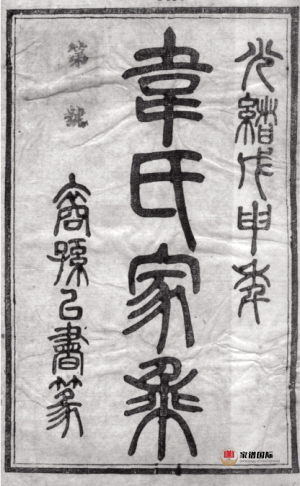 光緒戊申年
韋氏家乘
裔孫書篆
第 號
家谱国际